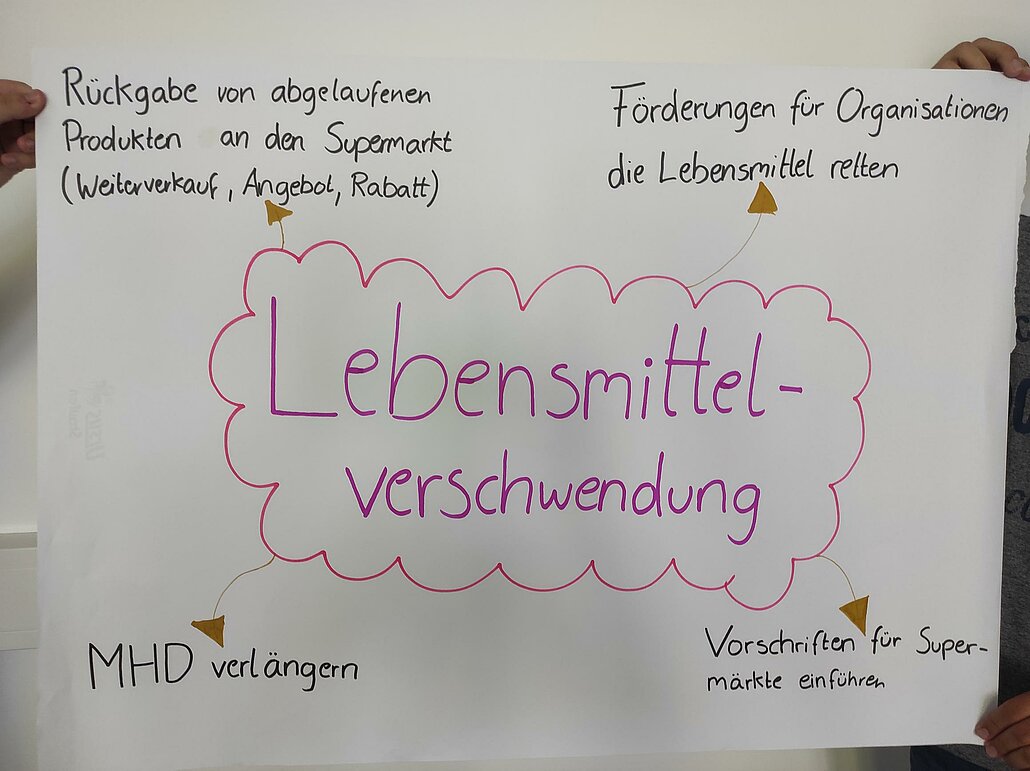 Rückgabe von abgelaufenen
Produkten an den Supermarkt
(Weiterverkauf, Angebot, Rabatt)
Förderungen für Organisationen
die Lebensmittel retten
Lebensmittel-
verschwendung
MHD verlängern
Vorschriften für Super-
märkte einführen